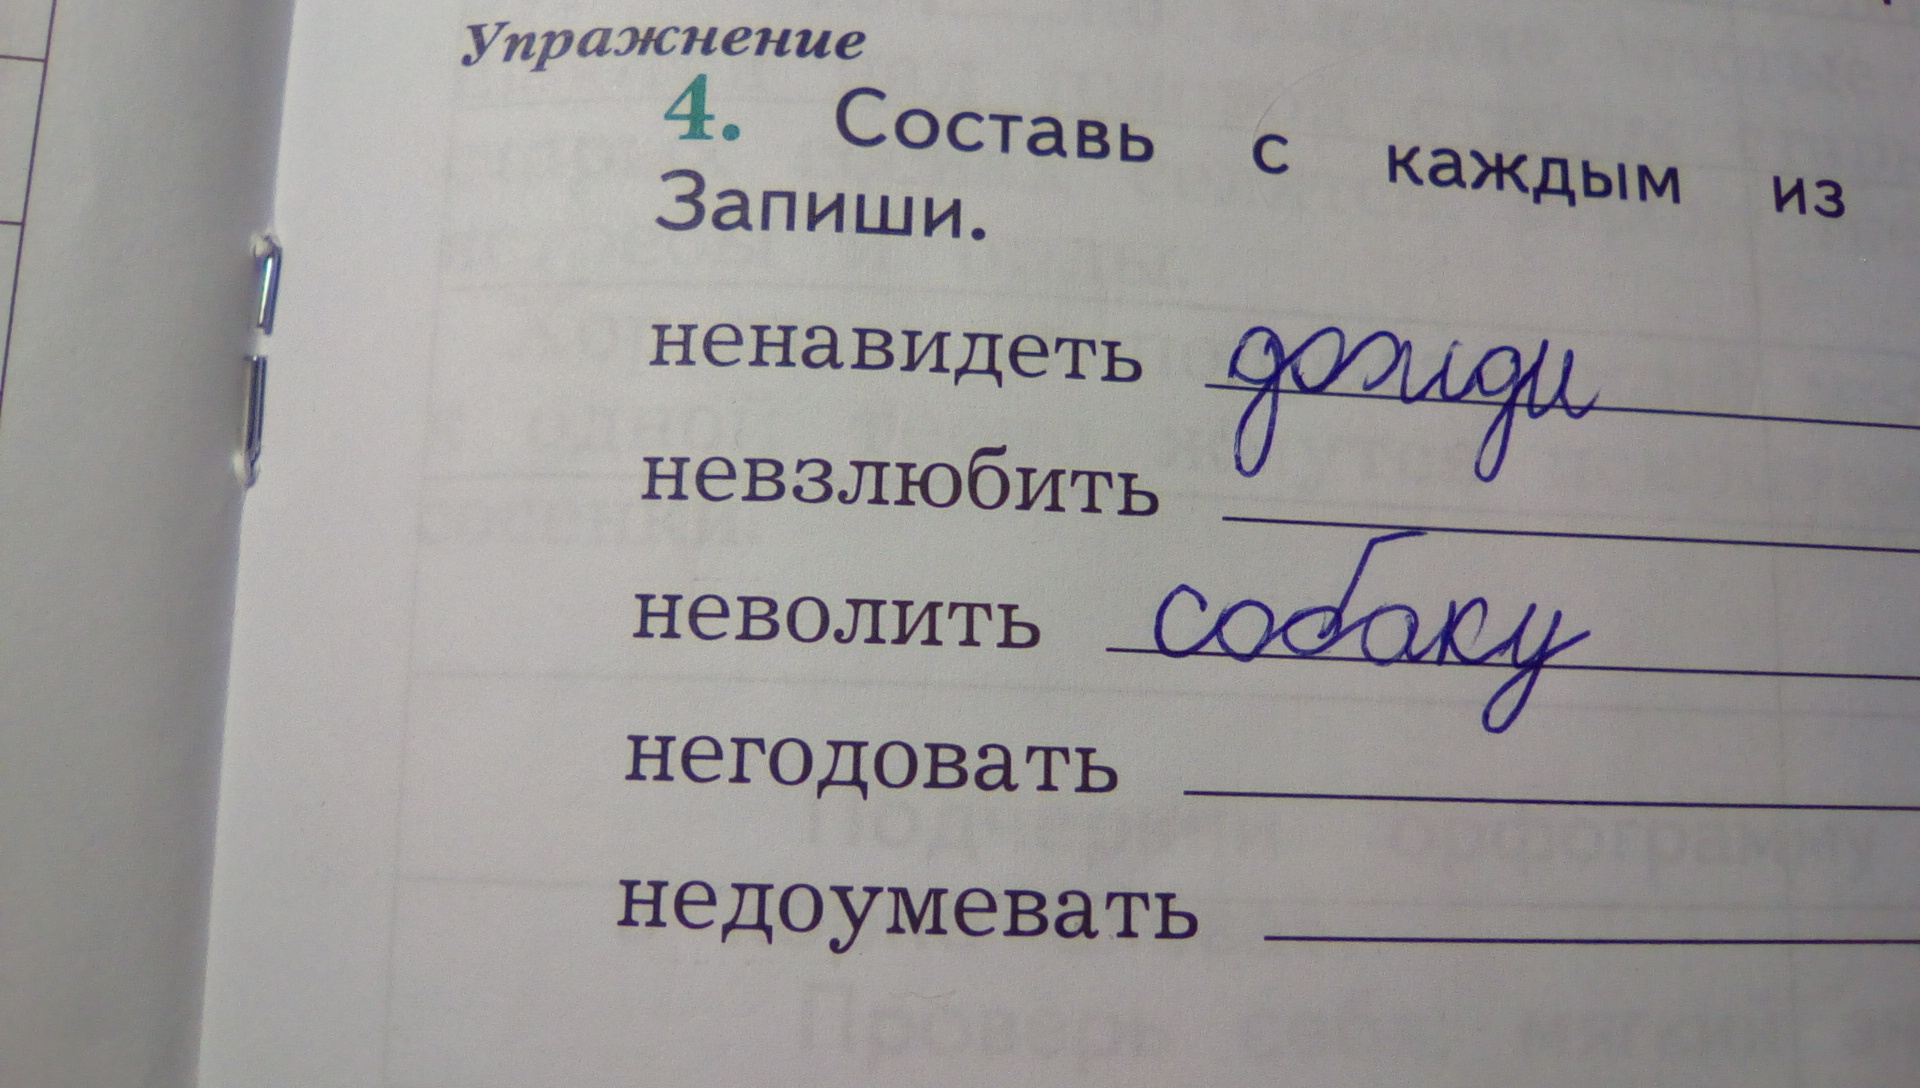 Упражнение
4. Составь с каждым из
Запиши.
ненавидеть дожди
невзлюбить
неволить собаку
негодовать
недоумевать